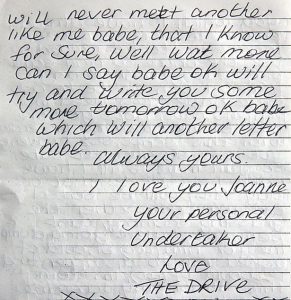 will never meet another
like me babe, that I know
for sure, well wat more
can I say babe ok will
try and write you some
more tomorrow ok babe
which will another letter
babe.
always yours.
I love you Joanne
your personal
Undertaker
LOVE
THE DRIVE